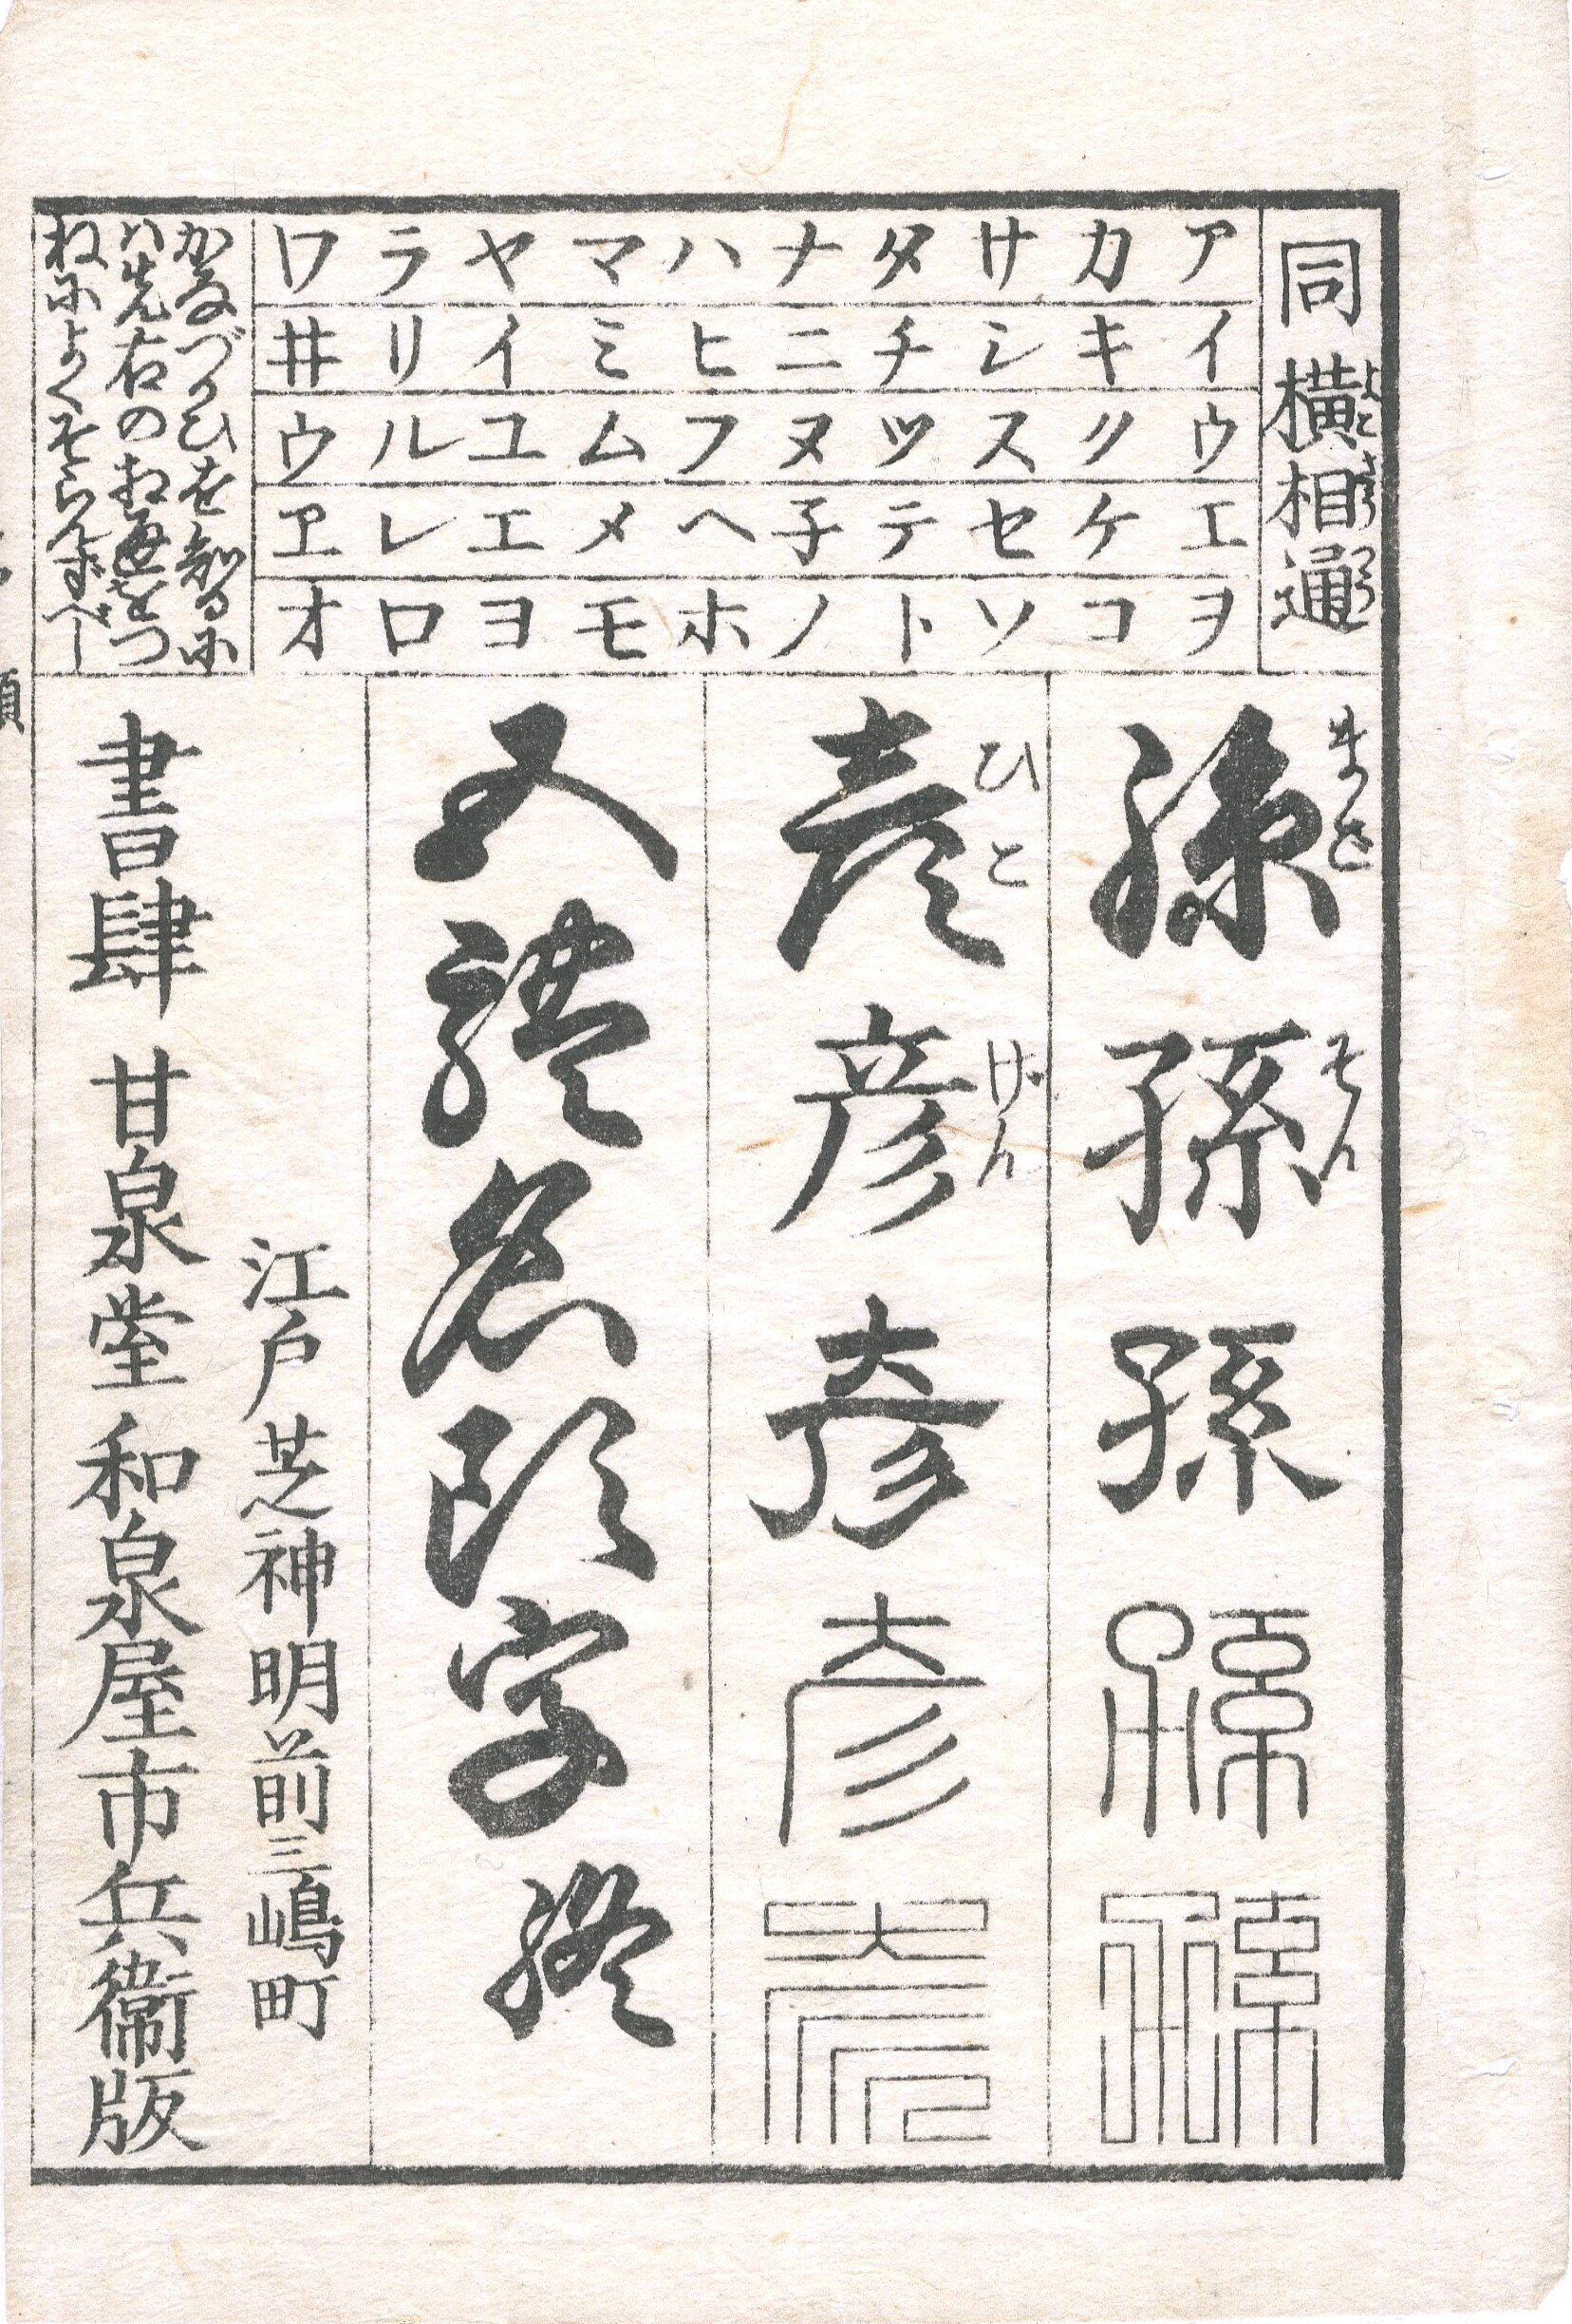 同横相通
よこ あい つう
アイウエヲ
カキクケコ
サシスセソ
タチツテト
ナニヌ子ノ
ハヒフヘホ
マミムメモ
ヤイユエヨ
ラリルレロ
ワ井ウヱオ
かなづかひを知るに
ハ先右の相通をつ
ねによくそらんずべし
まご そん
孫孫孫孫孫
ひこ げん
彦彦彦彦彦
五體名頭字終
江戸芝神明前三嶋町
書肆 甘泉堂 和泉屋市兵衛版